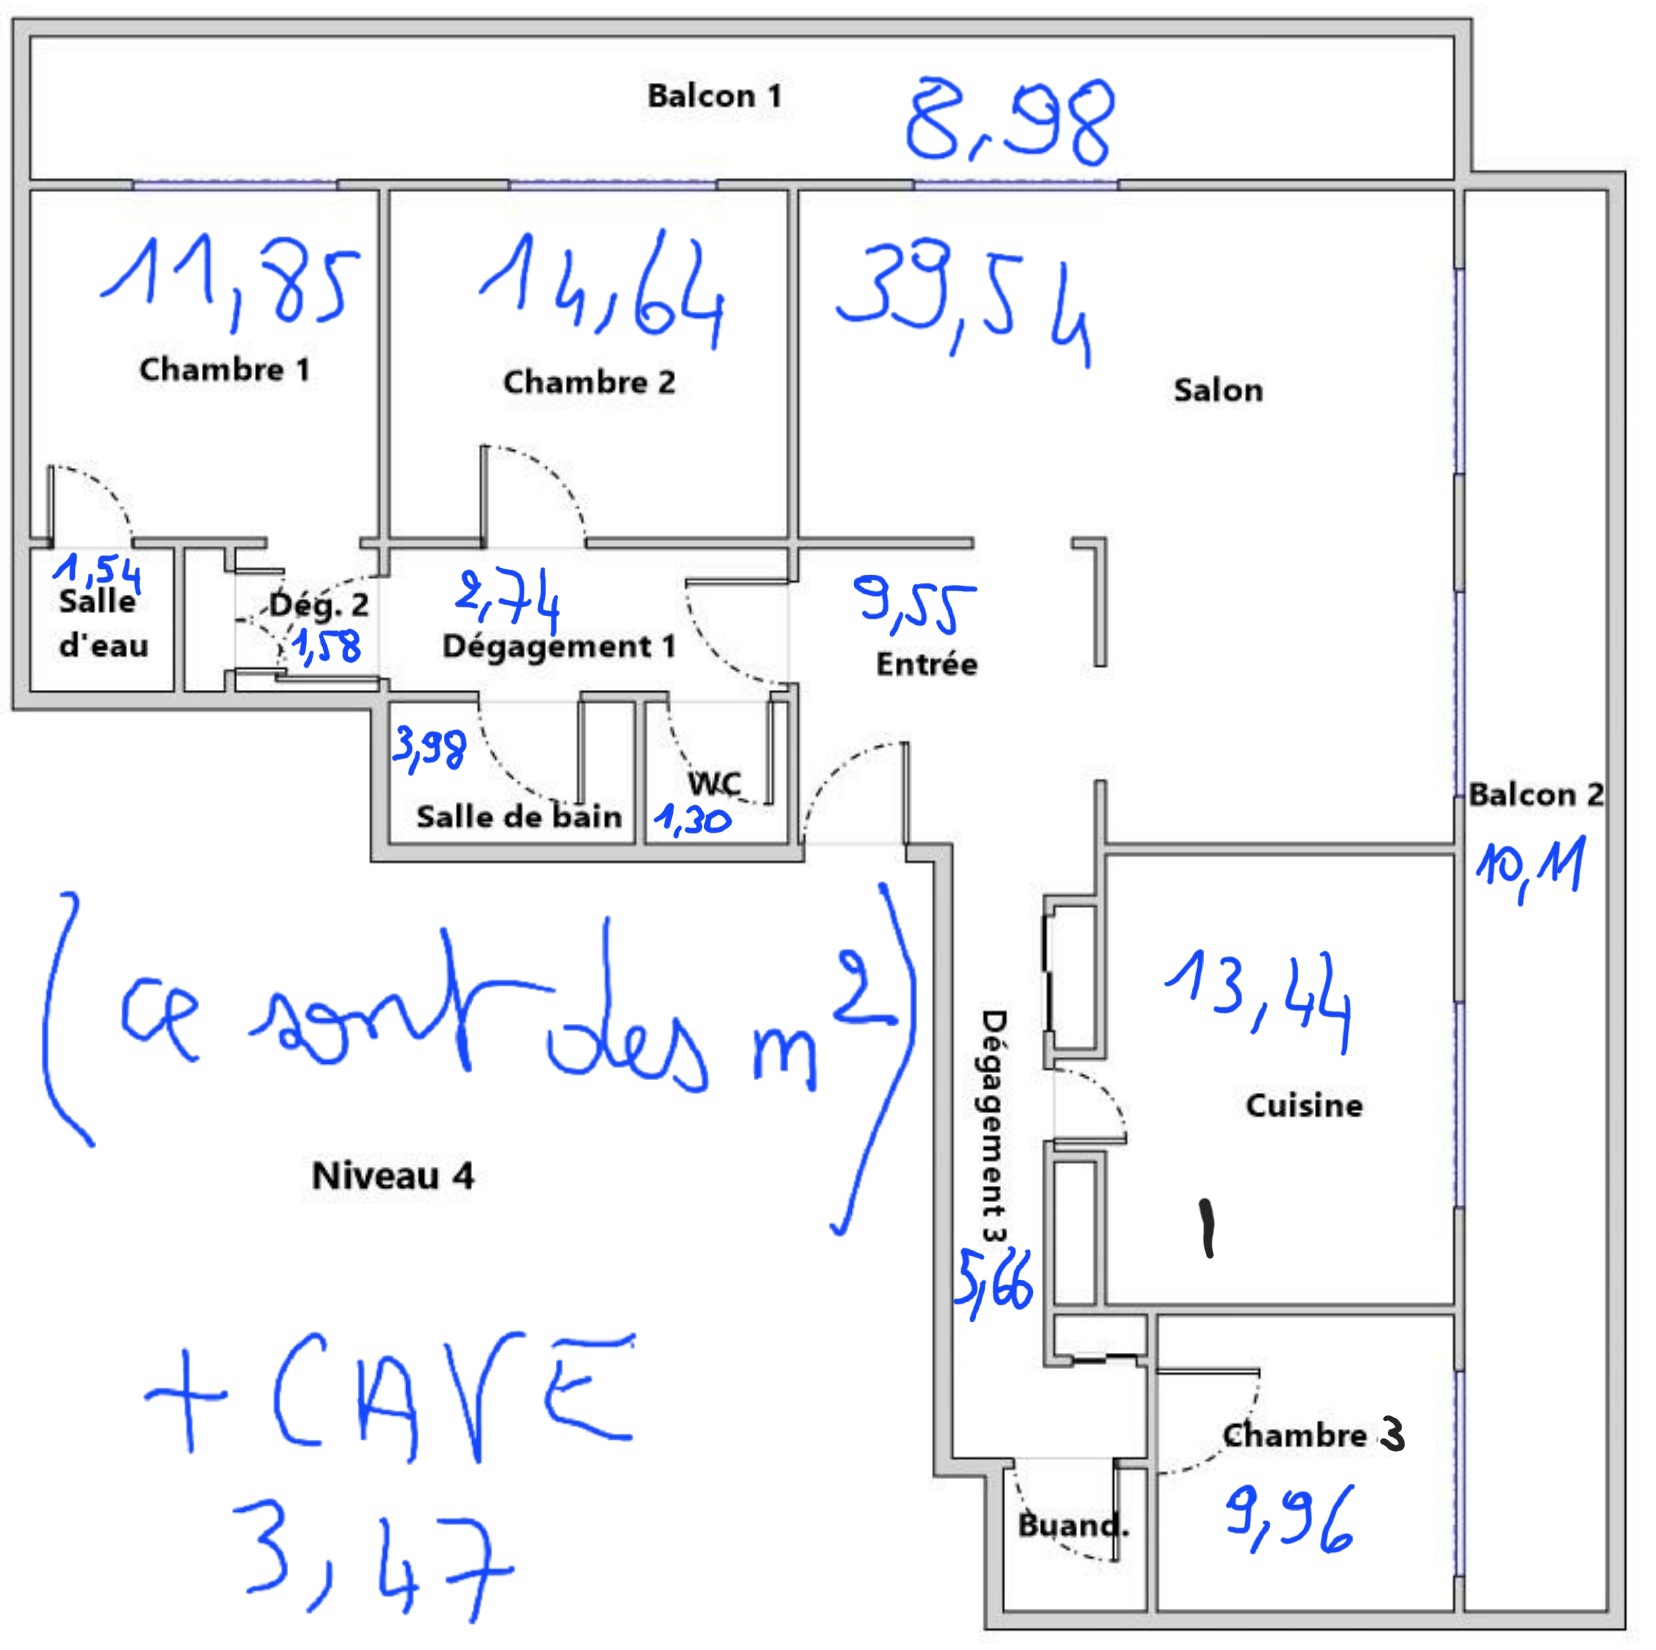 Balcon 1
8,98
11,85
Chambre 1
14,64
Chambre 2
39,54
Salon
1,54
Salle
d'eau
Dég. 2
1,58
2,74
Dégagement 1
9,55
Entrée
3,98
Salle de bain
WC
1,30
Balcon 2
10,11
(ce sont des m²)
Niveau 4
+ CAVE
3,47
Dégagement 3
5,66
13,44
Cuisine
Chambre 3
9,96
Buand.